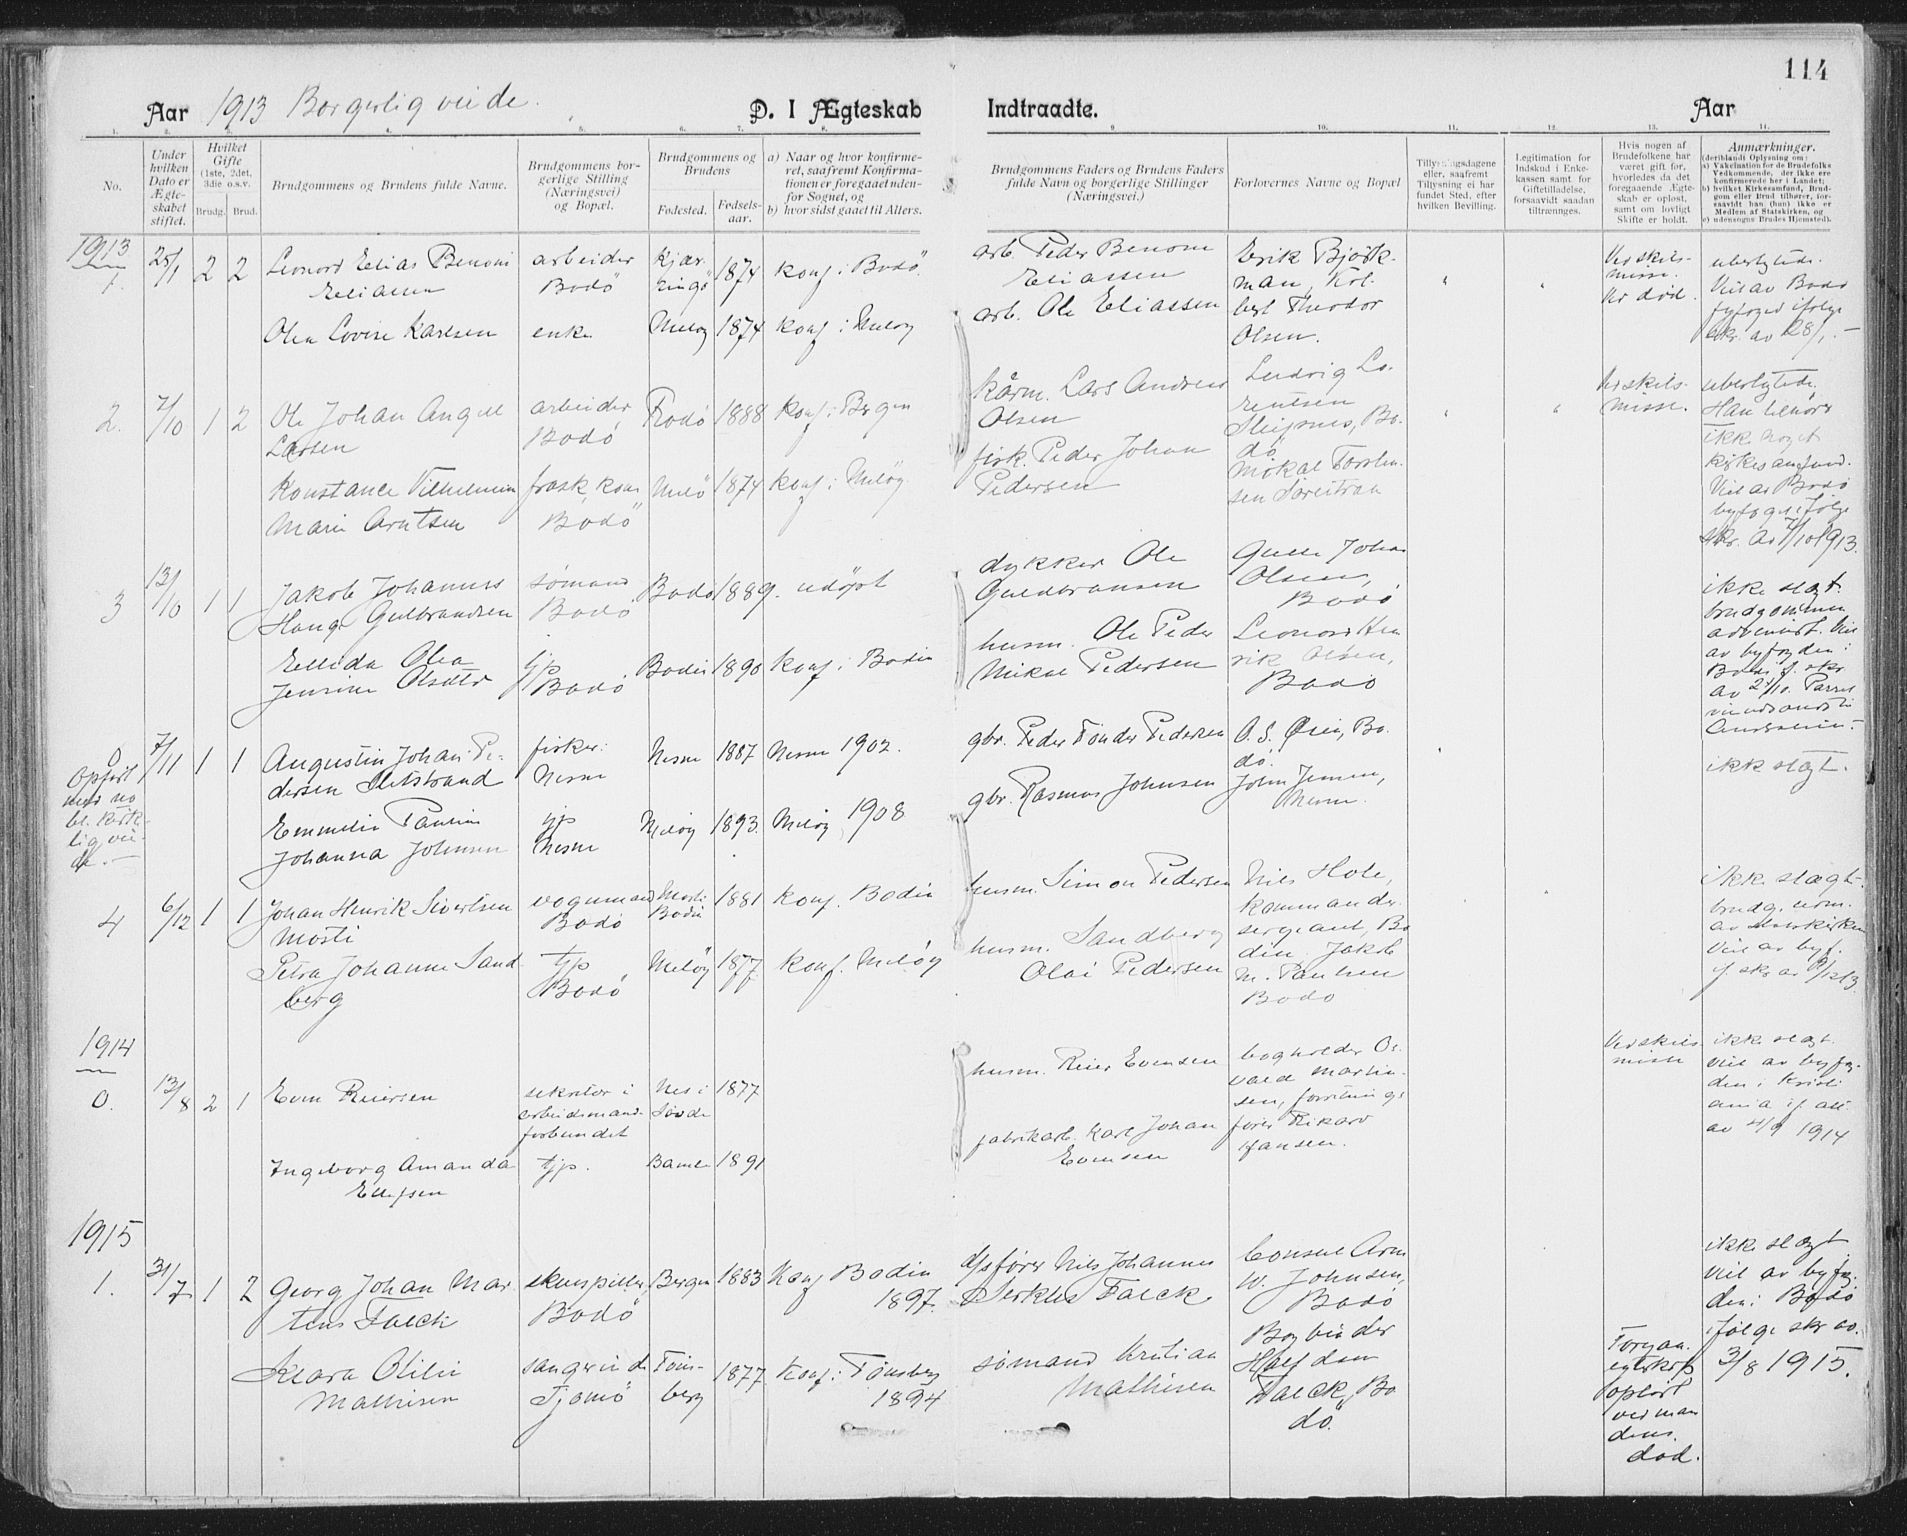 114
Aar 1913 Borgerlig viede. D. I Ægteskab Indtraadte. Aar
1. 2. 3. 4. 5. 6. 7. 8. 9. 10. 11. 12. 13. 14.
No.
Under hvilken Dato er Ægteskabet stiftet.
Hvilket Gifte (1ste, 2det, 3die o.s.v.
Brudg. Brud.
Brudgommens og Brudens fulde Navne.
Brudgommens borgerlige Stilling (Næringsvei) og Bopæl.
Brudgommens og Brudens
Fødested. Fødselsaar.
a) Naar og hvor konfirmeret, saafremt Konfirmationen er foregaaet udenfor Sognet, og
b) hvor sidst gaaet til Alters.
Brudgommens Faders og Brudens Faders fulde Navn og borgerlige Stillinger (Næringsvei.)
Forlovernes Navne og Bopæl
Tillysningsdagene eller, saafremt Tillysning ei har fundet Sted, efter hvilken Bevilling.
Legitimation for Indskud i Enkekassen samt for Giftetilladelse, forsaavidt saadan tiltrænges.
Hvis nogen af Brudefolkene har været gift før, hvorledes da det foregaaende Ægteskab er opløst, samt om lovligt Skifte er holdt.
Anmærkninger.
(deriblandt Oplysning om:
a) Vakcination for de Brudefolks Vedkommende, der ikke ere konfirmerede her i Landet;
b) hvilket Kirkesamfund, Brudgom eller Brud tilhører, forsaavidt han (hun) ikke er Medlem af Statskirken, og
c) udensogns Brudes Hjemsted).
1913
1. 28/1 2 2 Leonard Elias Benoni Eliassen
arbeider Bodö
Kjærringö 1874 konf. i Bodö
arb. Peder Benoni Eliassen
Erik Björkman, Kolbert Theodor Olsen.
Ved skilsmisse. Ved død.
ubeslegtede. Viet av Bodö byfoged ifölge skr. av 28/1.
Olea Lovise Karlsen
enke
Melöy 1874 konf. i Melöy
arb. Ole Eliassen
2. 7/10 1 2 Ole Johan Angell Larsen
arbeider Bodö
Rödö 1888 konf. i Bergen
kårm. Lars Andreas Olsen
Ludvig Lorentsen Sleipnes, Bodö
Mikal Torstensen
Ved skilsmisse.
ubeslegtede. Han tilhører ikke noget kirkesamfund. Viet av Bodö byfoged ifölge skr. av 7/10 1913.
Konstance Vilhelmine Marie Arntsen
frask. kone Bodö
Melö 1874 konf. i Melöy.
fisk. Peder Johan Pedersen
3 13/10 1 1 Jakob Johannes Haug Gulbrandsen
sømand Bodö
Bodö 1889. udöpt
dykker Ole Guldbransen
Johan Olsen, Bodö
ikke slægt. brudgommen adventist. Viet av byfogden i Bodö
Ellida Olea Jensine Olsdtr
tjp Bodö
Bodin 1890 konf. i Bodin
husm. Ole Peder Mikal Pedersen
Leonard Henrik Olsen, Bodö
0 Opført med no bl. kirklig viede.
7/11 1 1 Augustin Johan Pedersen Sletstrand
fisker: Nesne
Nesne 1887 Nesne 1902.
gbr. Peder Tønder Pedersen
O. S. Øien, Bodö.
ikke slægt.
Emmelie Pauline Johanna Johnsen
tjp Nesne
Meløy 1893. Meløy 1908
gbr. Rasmus Johnsen
John Jensen, Nesne.
4 6/12 1 1 Johan Henrik Sivertsen Mosti
vognmand Bodö
Mosti Bodin 1881 konf. Bodin
husm. Simon Pedersen
Nils Hole, kommandersergeant, Bodin, Jakob M. Paulsen Bodö
ikke slægt. brudg. utm. av statskirken Viet av byf. if skr av 6/12 13.
Petra Johanne Sandberg
tjp Bodö
Melöy 1877. konf. Melöy
husm. Sandberg Olai Pedersen
1914
0. 13/8 2 1 Even Reiersen
sekretær i arbeidsmandsforbundet
Nes i Sövde 1877
husm. Reier Evensen
bogholder Osvald Martinsen, forretningsfører Rikard Hansen.
Ved skilsmisse
ikke slægt. Viet av byfogden i Kristiania if. att av 4/9 1914
Ingeborg Amanda Ellefsen
tjp.
Bamle 1891
fabrikarb. Karl Johan Evensen
1915
1. 31/7 1 2 Georg Johan Martens Falck
skuespiller, Bodö
Bergen 1883 Konf Bodin 1897.
dsfører Nils Johannes Falck
Consul Arn W. Johnsen, Bodö
ikke slægt Viet av byfogden i Bodö ifølge skr av. 3/8 1915.
Klara Otilie Mathisen
sangerinde Tjömö
Tönsberg 1877. Konf. i Tønsberg 1894
sømand Kristian Mathisen
Bogbinder Halfdan Falck, Bodö.
Forgan. egteskap opløst ved mandens død.